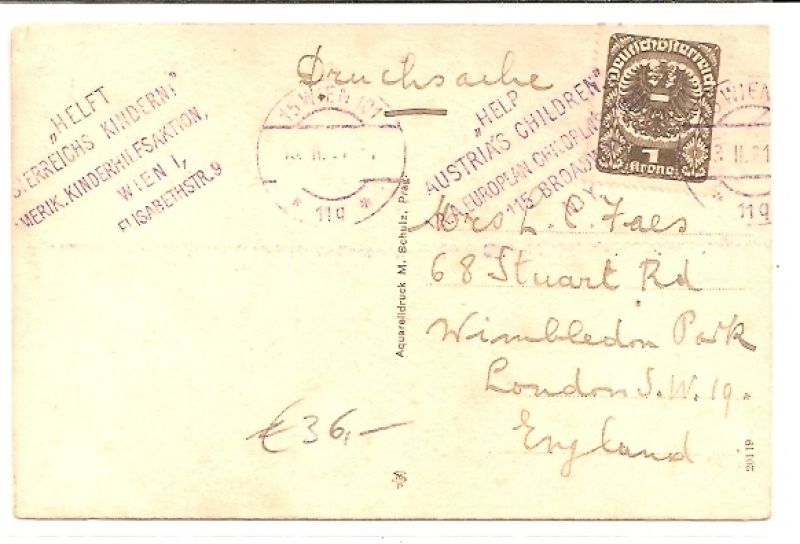 Drucksache
„HELFT
ÖSTERREICHS KINDERN!"
AMERIK. KINDERHILFSAKTION,
WIEN I,
ELISABETHSTR. 9
15 WIEN 101
* 11g *
„HELP
AUSTRIA'S CHILDREN"
EUROPEAN CHILD
115 BROAD
N.Y.
Deutschösterreich
1
Krone
WIEN
3 II. 21
* 11g
Mrs L. C. Faes
68 Stuart Rd
Wimbledon Park
London S.W. 19.
England
Aquarelldruck M. Schulz, Prag
€36,—
20119